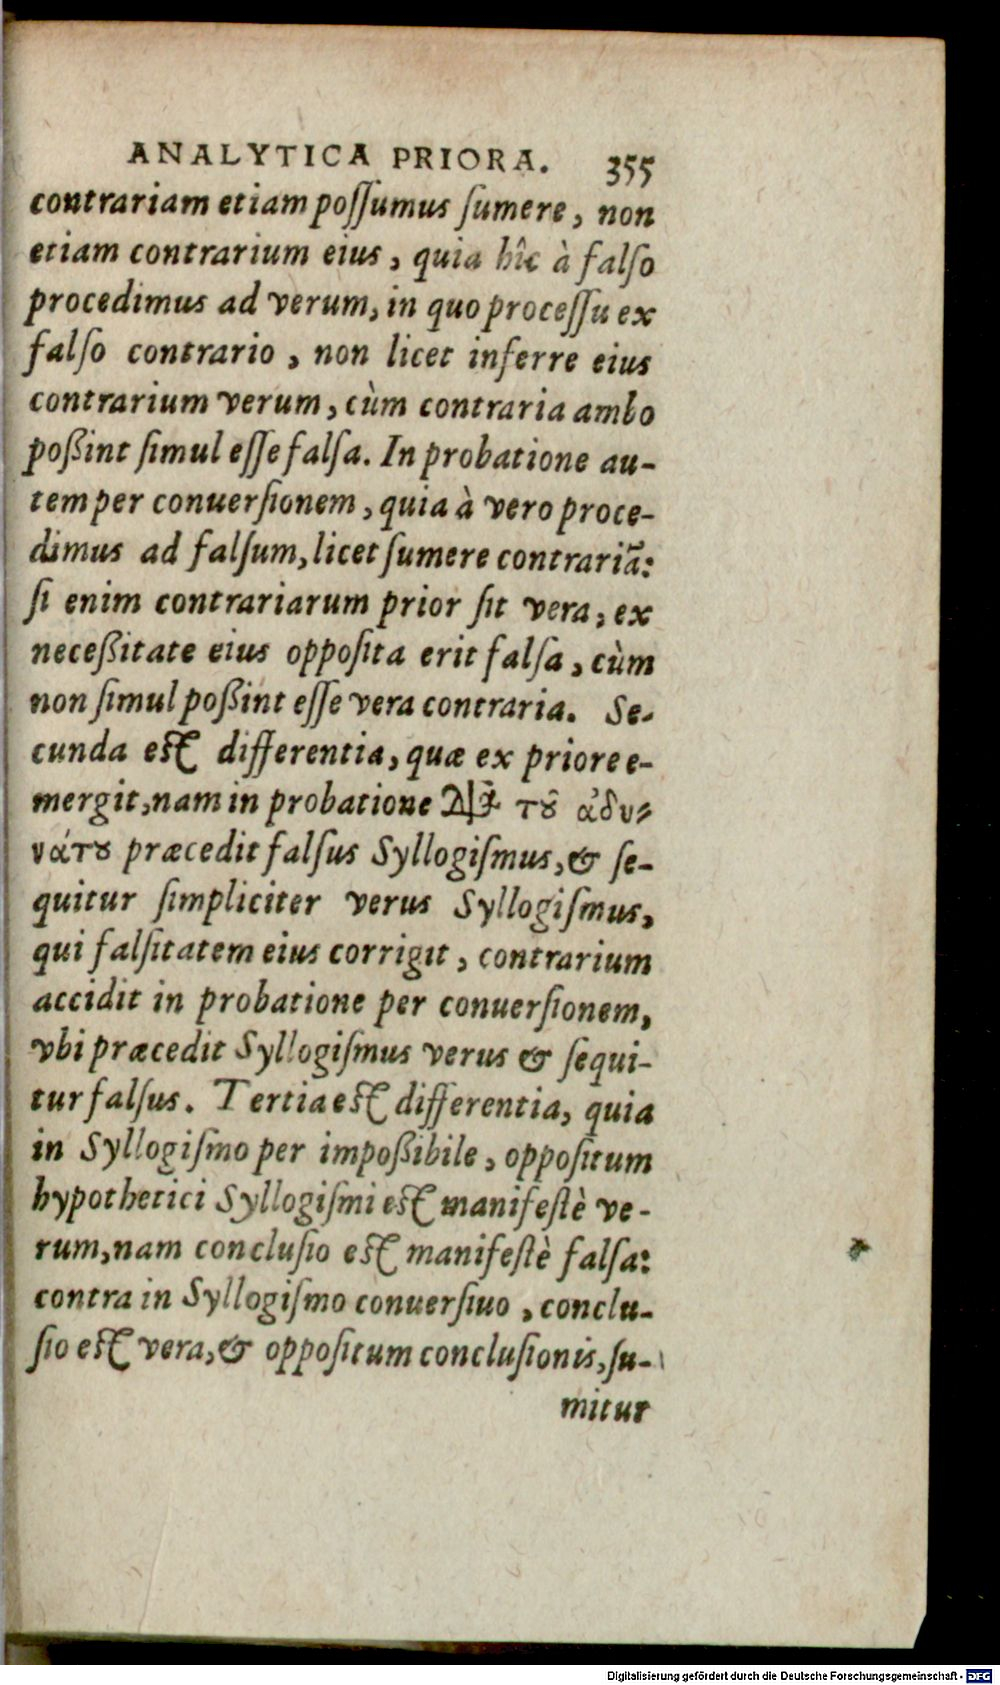 ANALYTICA PRIORA. 355
contrariam etiam poſſumus ſumere, non
etiam contrarium eius, quia hîc à falſo
procedimus ad verum, in quo proceſſu ex
falſo contrario, non licet inferre eius
contrarium verum, cùm contraria ambo
poßint ſimul eſſe falſa. In probatione au-
tem per conuerſionem, quia à vero proce-
dimus ad falſum, licet ſumere contrariã:
ſi enim contrariarum prior ſit vera, ex
neceßitate eius oppoſita erit falſa, cùm
non ſimul poßint eſſe vera contraria. Se-
cunda eſt differentia, quæ ex priore e-
mergit, nam in probatione Διὰ τȣ͂ ἀδυ-
νάτȣ præcedit falſus Syllogiſmus, & ſe-
quitur ſimpliciter verus Syllogiſmus,
qui falſitatem eius corrigit, contrarium
accidit in probatione per conuerſionem,
vbi præcedit Syllogiſmus verus & ſequi-
tur falſus. Tertia eſt differentia, quia
in Syllogiſmo per impoßibile, oppoſitum
hypothetici Syllogiſmi eſt manifeſtè ve-
rum, nam concluſio eſt manifeſtè falſa:
contra in Syllogiſmo conuerſiuo, conclu-
ſio eſt vera, & oppoſitum concluſionis, ſu-
mitur
Digitalisierung gefördert durch die Deutsche Forschungsgemeinschaft - DFG